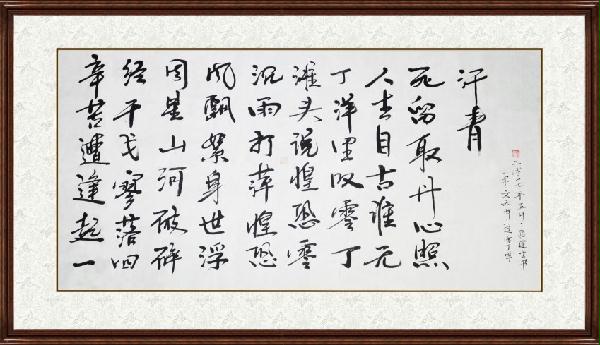 辛苦遭逢起一
经干戈寥落四
周星山河破碎
风飘絮身世浮
沉雨打萍惶恐
滩头说惶恐零
丁洋里叹零丁
人生自古谁无
死留取丹心照
汗青